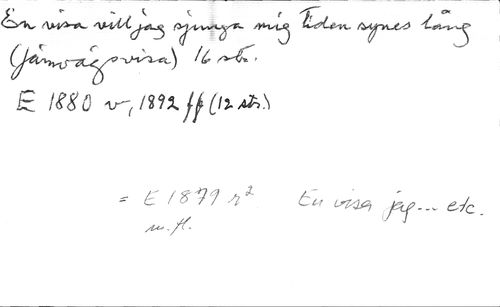 En visa vill jag sjunga mig tiden synes lång
(Järnvägsvisa) 16 str.
E 1880 v, 1892 ff (12 str.)
= E 1879 r² En visa jag... etc.
m.fl.